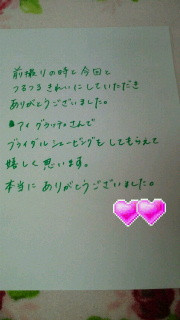 前撮りの時と今回と
つるつるきれいにしていただき
ありがとうございました。
アイ グラッティさんで
ブライダルシェービングをしてもらえて
嬉しく思います。
本当にありがとうございました。